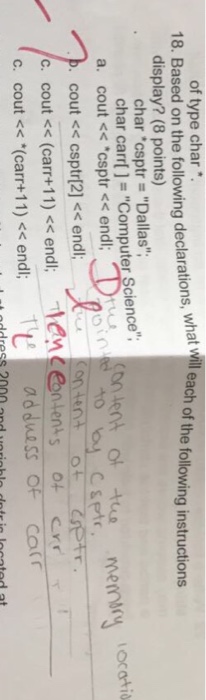 of type char *.
18. Based on the following declarations, what will each of the following instructions
display? (8 points)
char *csptr = "Dallas";
char carr[ ] = "Computer Science";
a. cout << *csptr << endl; D
the content of the memory locatio
pointed to by csptr.
b. cout << csptr[2] << endl; l
the content of csptr.
c. cout << (carr+11) << endl; ience
contents of
c. cout << *(carr+11) << endl;
the address of carr
address 2000 and variable dptr is located at